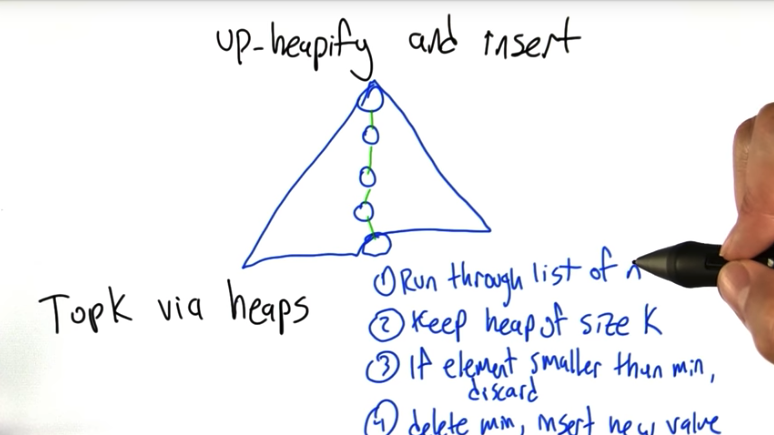 up-heapify and insert
TopK via heaps
① Run through list of n
② Keep heap of size K
③ If element smaller than min,
discard
④ delete min, insert new value